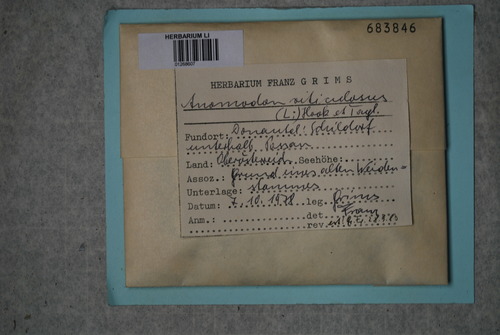 683846
HERBARIUM LI
HERBARIUM FRANZ GRIMS
Anomodon viticulosus
(L.) Hook et Tayl.
Fundort: Donautal: Schildorf
unterhalb Passau
Land: Oberösterreich Seehöhe:
Assoz.: Grund eines alten Weiden-
Unterlage: stammes
Datum: 7.10.1978 leg. Grims
Anm.: det. Franz
rev.